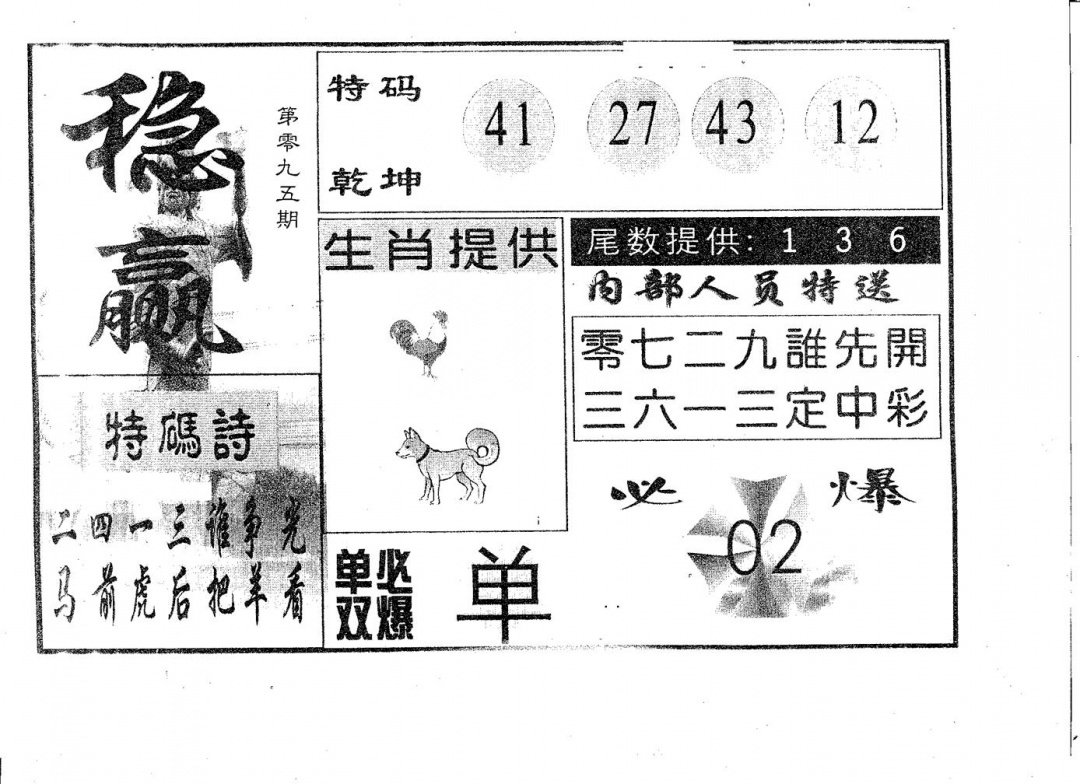 稳赢
第零九五期
特码
乾坤
41 27 43 12
生肖提供
尾数提供: 1 3 6
内部人员特送
零七二九誰先開
三六一三定中彩
特碼詩
二四一三谁争光
马前虎后把羊看
必爆
02
单双
必爆
单